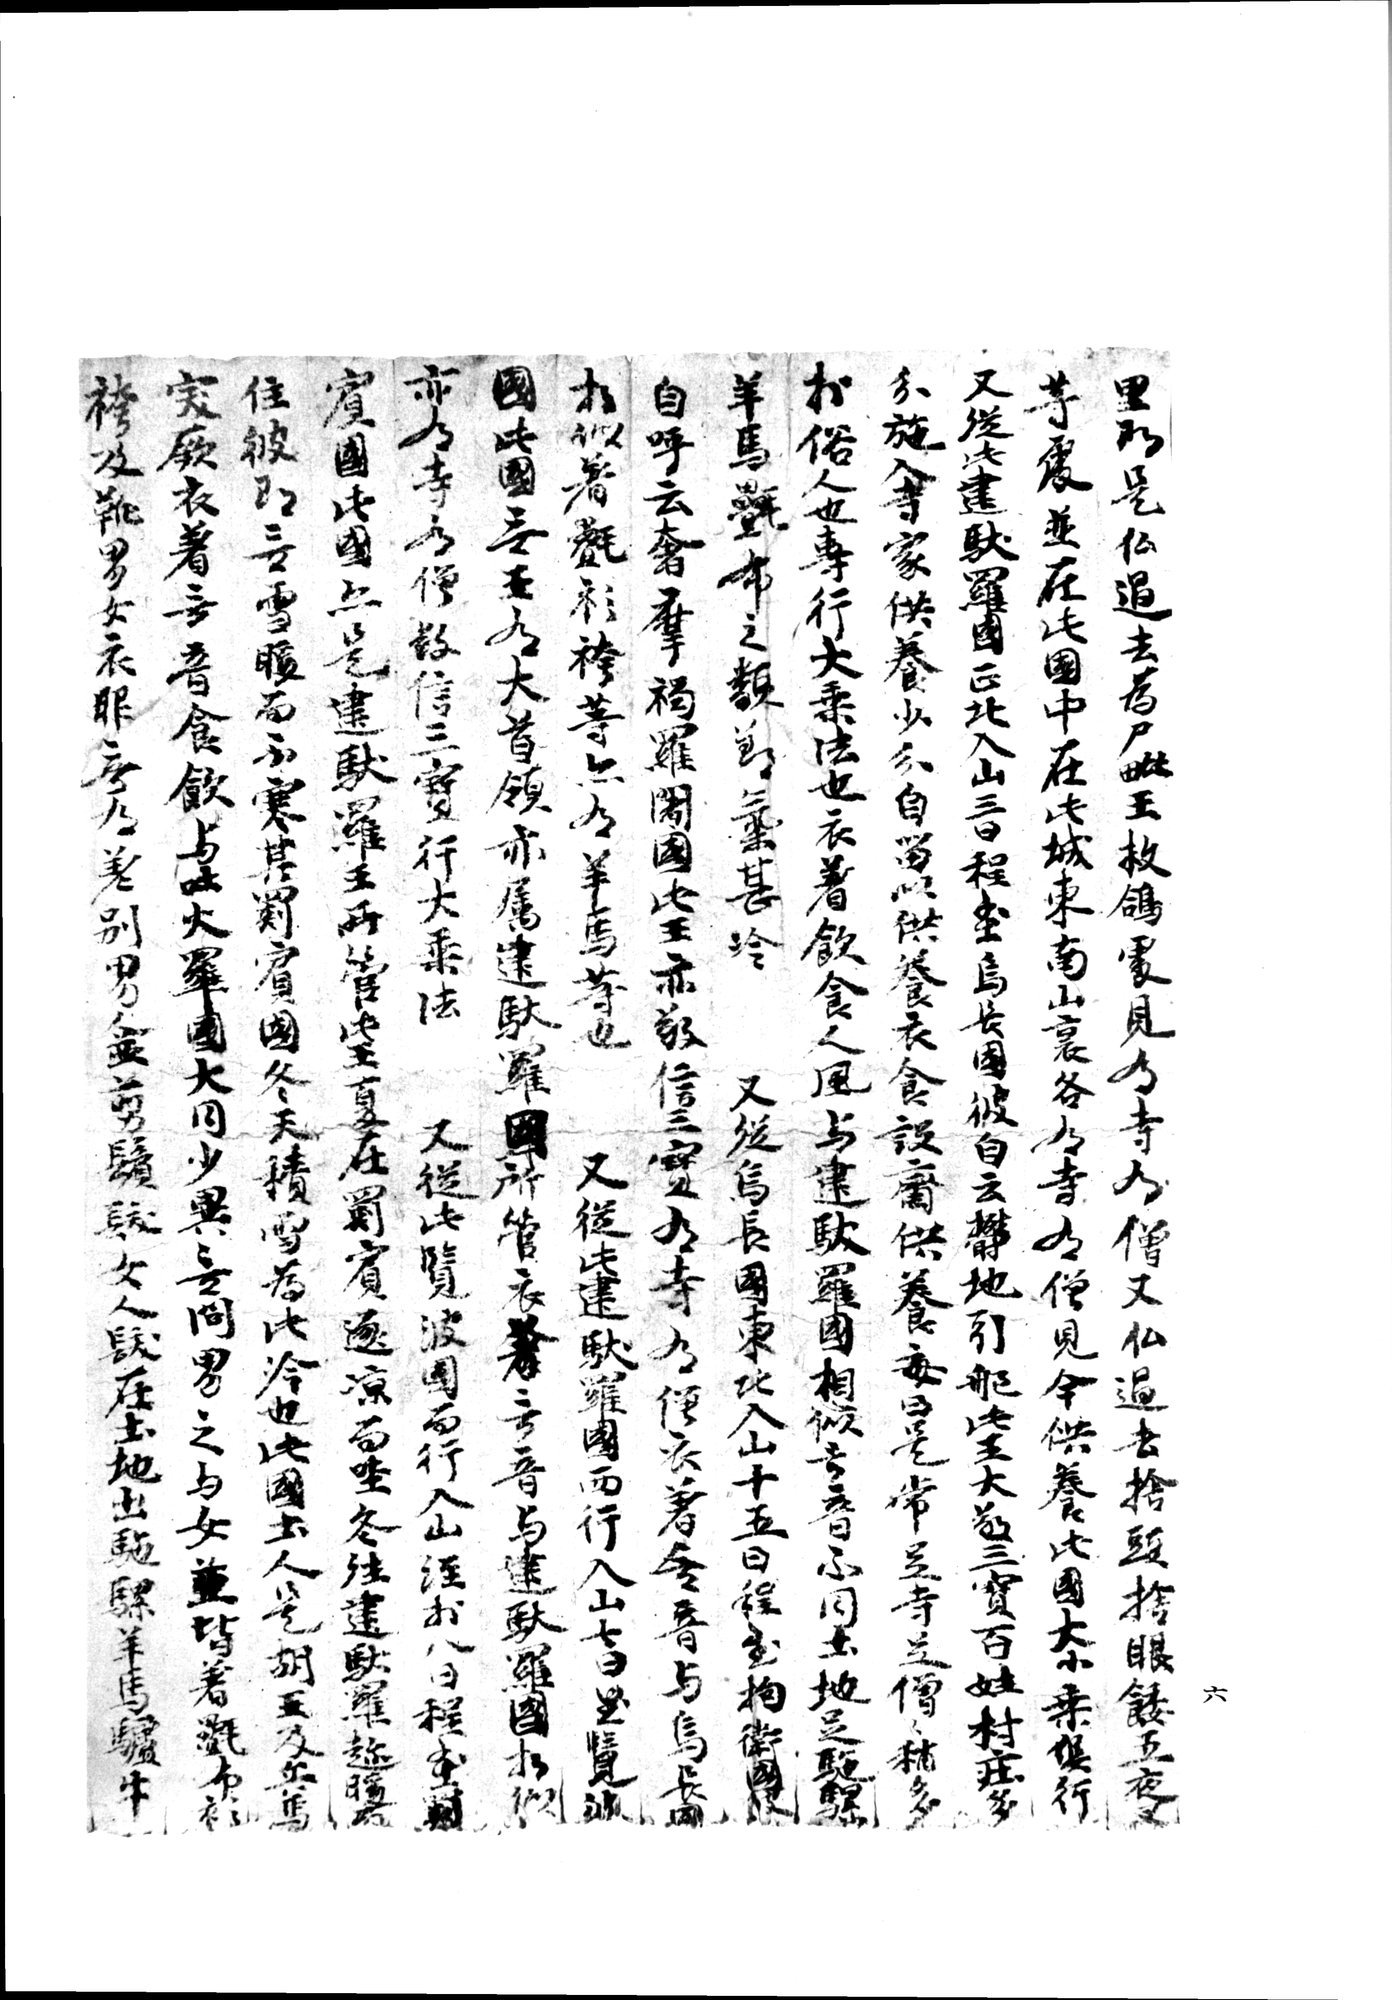 里即是仏過去為尸毗王救鴿處見有寺有僧又仏過去捨頭捨眼餧五夜叉
等處並在此國中在此城東南山裏各有寺有僧見今供養此國大小乘俱行
又從此建馱羅國正北入山三日程至烏長國彼自云欝地引那此王大敬三寶百姓村庄多
分施入寺家供養少分自留以供養衣食設齋供養每日是常足寺足僧僧稍多
於俗人也專行大乘法也衣著飲食人風与建馱羅國相似言音不同土地足駞騾
羊馬氎布之類節氣甚冷　又從烏長國東北入山十五日程至拘衛國彼
自呼云奢摩褐羅闍國此王亦敬信三寶有寺有僧衣著言音与烏長國
相似著氎衫袴等亦有羊馬等也　又從此建馱羅國西行入山七日至覽波
國此國无王有大首領亦属建馱羅國所管衣著言音与建馱羅國相似
亦有寺有僧敬信三寶行大乘法　又從此覽波國而行入山經於八日程至罽
賓國此國亦是建馱羅王所管此王夏在罽賓逐涼而坐冬往建馱羅趁暖而
住彼即无雪暖而不寒其罽賓國冬天積雪為此冷也此國土人是胡王及兵馬
突厥衣著言音食飲与吐火羅國大同少異无問男之与女並皆著氎布衫
袴及靴男女衣服无有差別男人並剪鬚髮女人髮在土地出駞騾羊馬驢牛
六